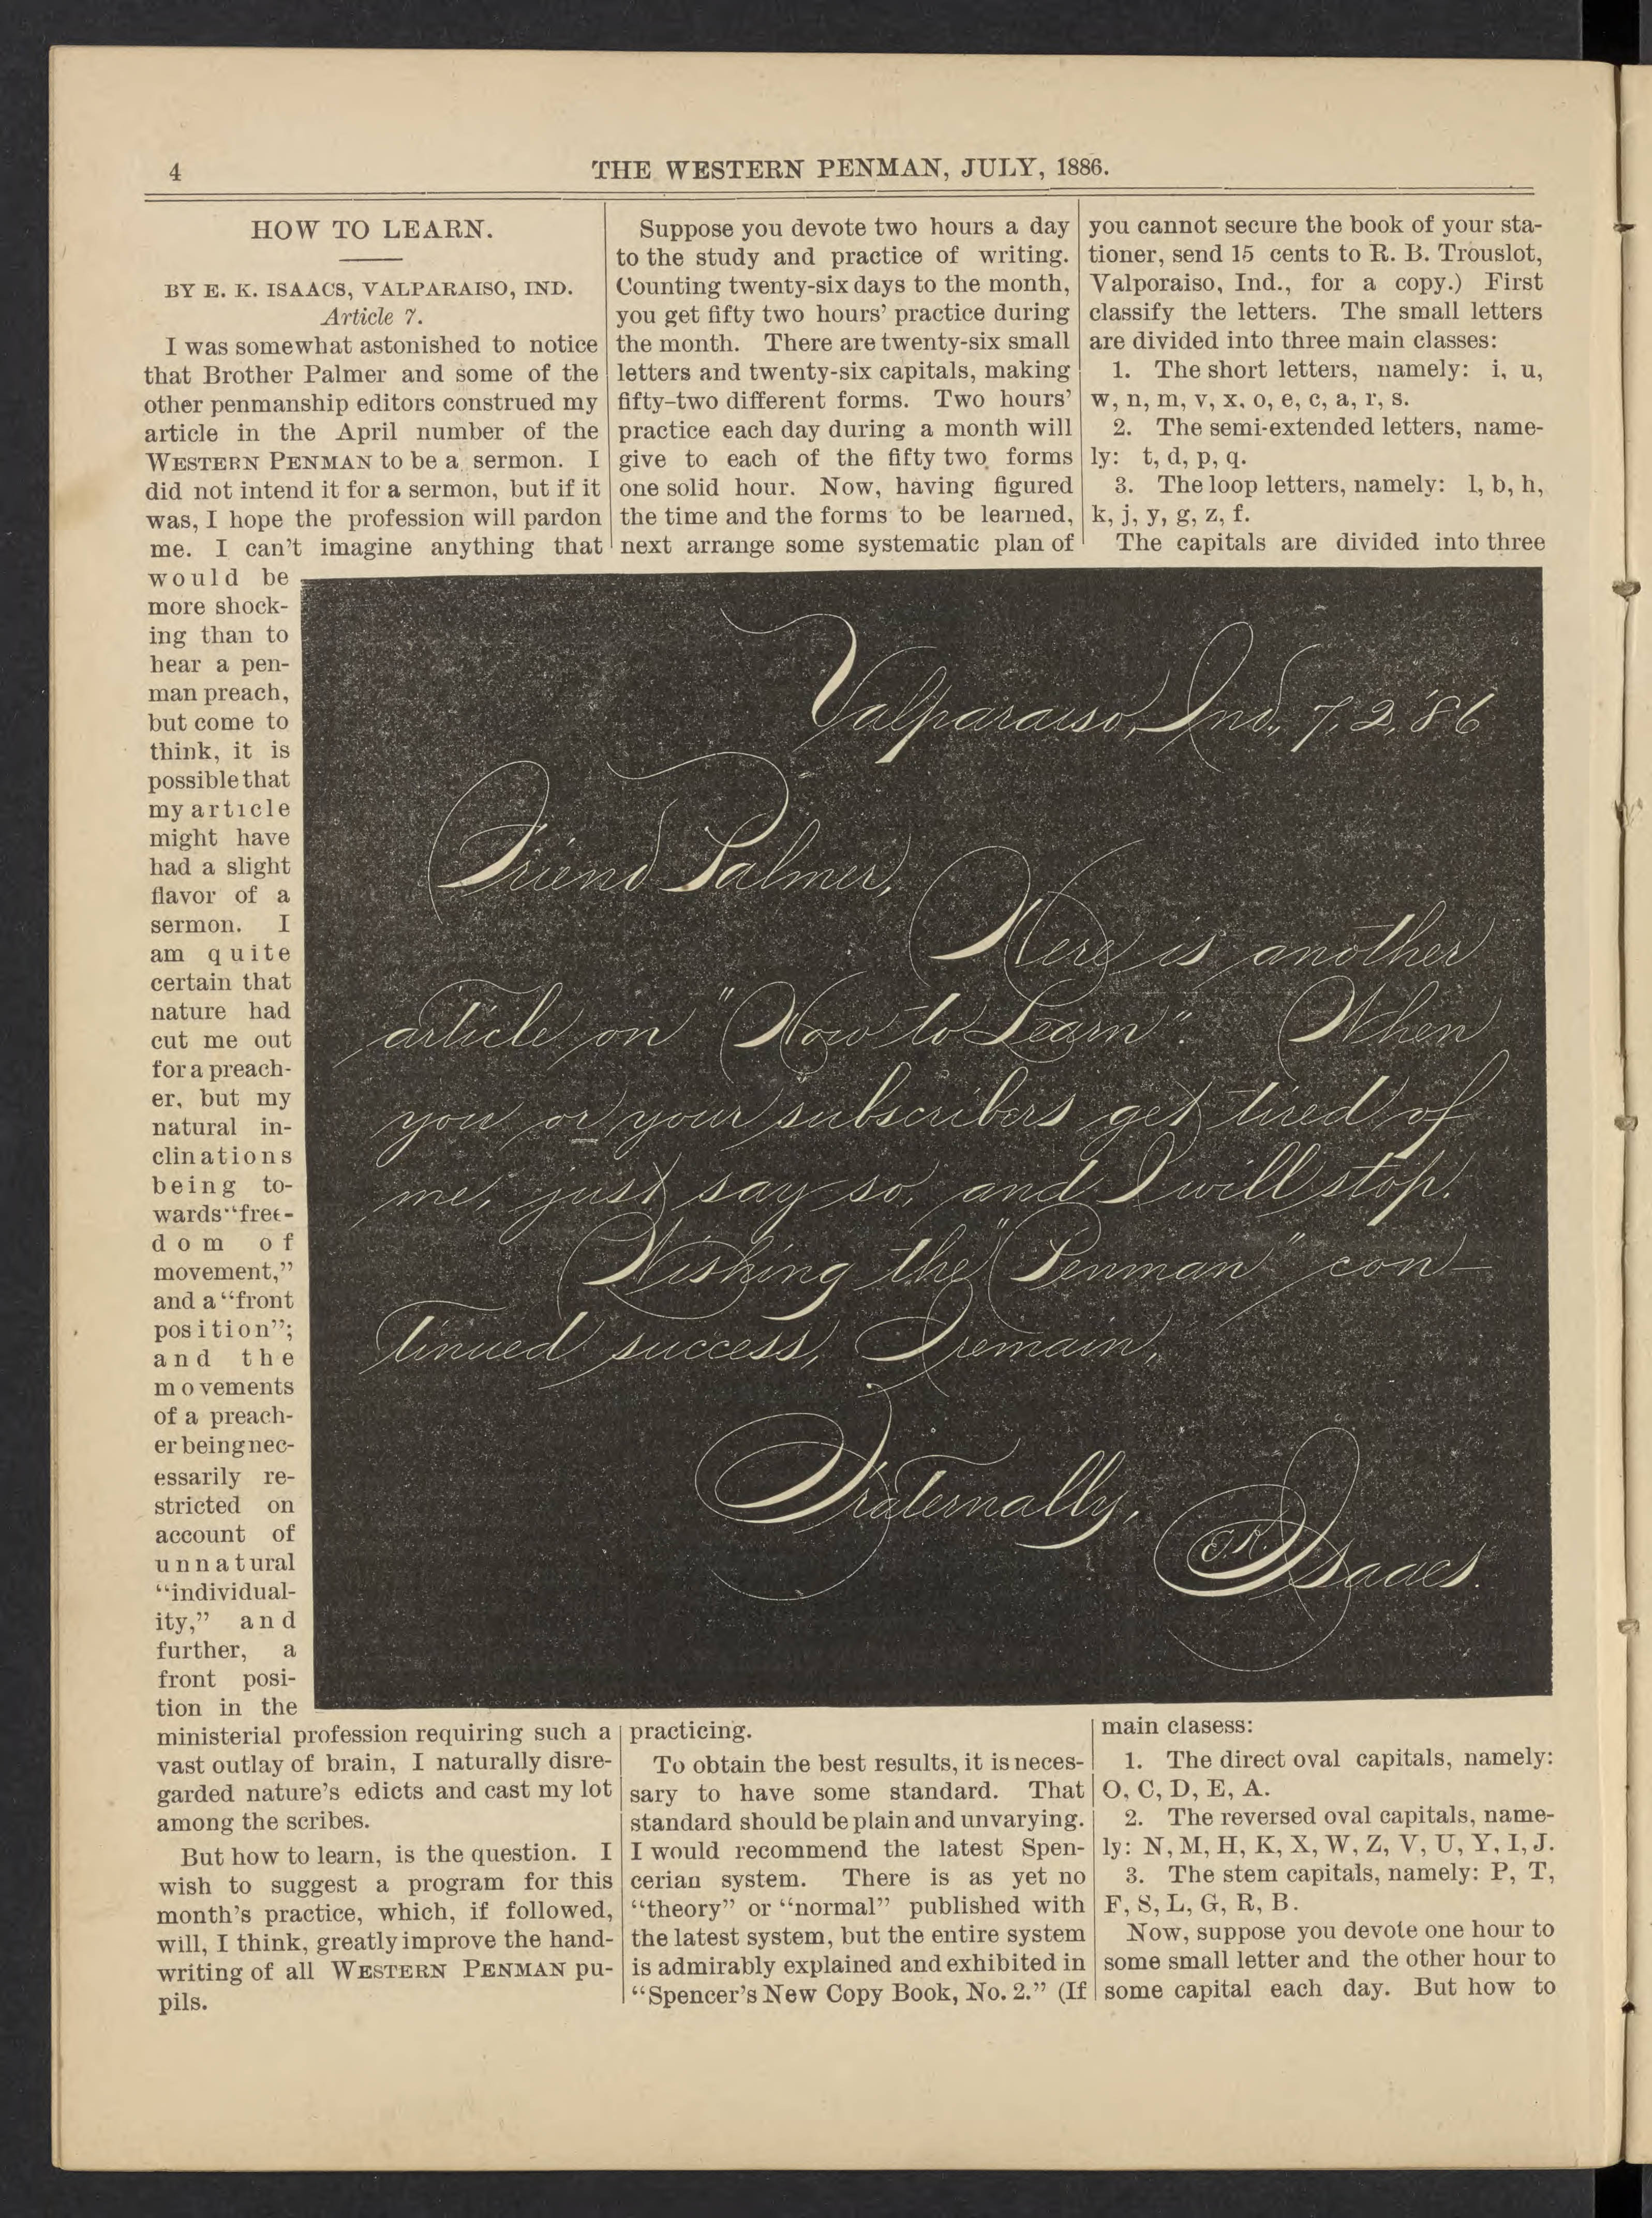 4
THE WESTERN PENMAN, JULY, 1886.
HOW TO LEARN.
BY E. K. ISAACS, VALPARAISO, IND.
Article 7.
I was somewhat astonished to notice
that Brother Palmer and some of the
other penmanship editors construed my
article in the April number of the
WESTERN PENMAN to be a sermon. I
did not intend it for a sermon, but if it
was, I hope the profession will pardon
me. I can't imagine anything that
would be
more shock-
ing than to
hear a pen-
man preach,
but come to
think, it is
possible that
my article
might have
had a slight
flavor of a
sermon. I
am quite
certain that
nature had
cut me out
for a preach-
er, but my
natural in-
clinations
being to-
wards "free-
dom of
movement,"
and a "front
position";
and the
movements
of a preach-
er being nec-
essarily re-
stricted on
account of
unnatural
"individual-
ity," and
further, a
front posi-
tion in the
ministerial profession requiring such a
vast outlay of brain, I naturally disre-
garded nature's edicts and cast my lot
among the scribes.
But how to learn, is the question. I
wish to suggest a program for this
month's practice, which, if followed,
will, I think, greatly improve the hand-
writing of all WESTERN PENMAN pu-
pils.
Suppose you devote two hours a day
to the study and practice of writing.
Counting twenty-six days to the month,
you get fifty two hours' practice during
the month. There are twenty-six small
letters and twenty-six capitals, making
fifty-two different forms. Two hours'
practice each day during a month will
give to each of the fifty two forms
one solid hour. Now, having figured
the time and the forms to be learned,
next arrange some systematic plan of
practicing.
To obtain the best results, it is neces-
sary to have some standard. That
standard should be plain and unvarying.
I would recommend the latest Spen-
cerian system. There is as yet no
"theory" or "normal" published with
the latest system, but the entire system
is admirably explained and exhibited in
"Spencer's New Copy Book, No. 2." (If
you cannot secure the book of your sta-
tioner, send 15 cents to R. B. Trouslot,
Valporaiso, Ind., for a copy.) First
classify the letters. The small letters
are divided into three main classes:
1. The short letters, namely: i, u,
w, n, m, v, x, o, e, c, a, r, s.
2. The semi-extended letters, name-
ly: t, d, p, q.
3. The loop letters, namely: l, b, h,
k, j, y, g, z, f.
The capitals are divided into three
main clasess:
1. The direct oval capitals, namely:
O, C, D, E, A.
2. The reversed oval capitals, name-
ly: N, M, H, K, X, W, Z, V, U, Y, I, J.
3. The stem capitals, namely: P, T,
F, S, L, G, R, B.
Now, suppose you devote one hour to
some small letter and the other hour to
some capital each day. But how to
Valparaiso, Ind., 7, 2, '86
Friend Palmer,
Here is another
article on "How to Learn". When
you or your subscribers get tired of
me, just say so, and I will stop.
Wishing the "Penman" con-
tinued success, I remain,
Fraternally,
E.K. Isaacs.